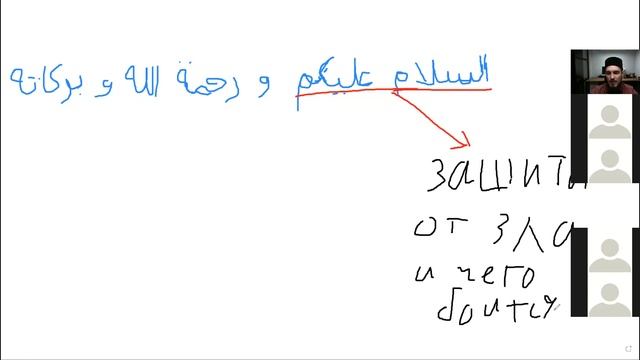 السلام عليكم و رحمة الله و بركاته
защита
от зла
и чего
боится